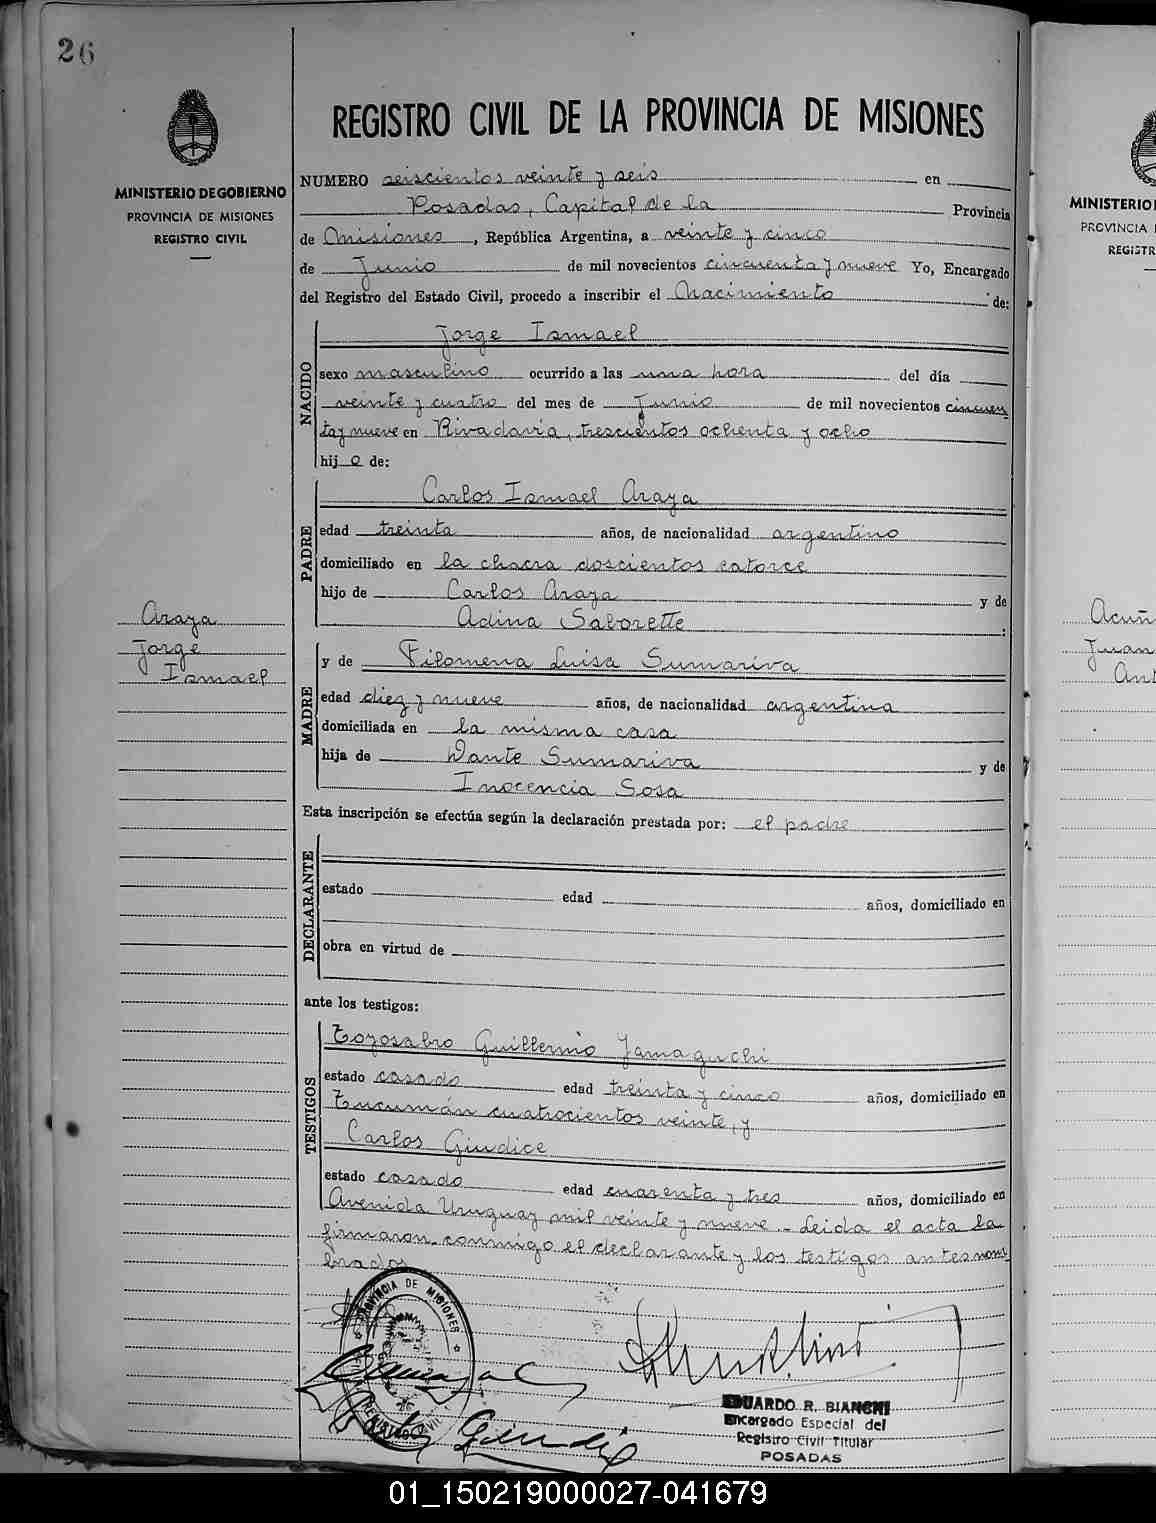 26
MINISTERIO DE GOBIERNO
PROVINCIA DE MISIONES
REGISTRO CIVIL
Araya
Jorge
Ismael
REGISTRO CIVIL DE LA PROVINCIA DE MISIONES
NUMERO seiscientos veinte y seis en
Posadas, Capital de la Provincia
de Misiones, República Argentina, a veinte y cinco
de Junio de mil novecientos cincuenta y nueve Yo, Encargado
del Registro del Estado Civil, procedo a inscribir el Nacimiento de:
NACIDO
Jorge Ismael
sexo masculino ocurrido a las una hora del día
veinte y cuatro del mes de Junio de mil novecientos cincuen
ta y nueve en Rivadavia, trescientos ochenta y ocho
hijo de:
PADRE
Carlos Ismael Araya
edad treinta años, de nacionalidad argentino
domiciliado en la chacra doscientos catorce
hijo de Carlos Araya y de
Adina Saborette :
MADRE
y de Filomena Luisa Sumariva
edad diez y nueve años, de nacionalidad argentina
domiciliada en la misma casa
hija de Dante Sumariva y de
Inocencia Sosa
Esta inscripción se efectúa según la declaración prestada por: el padre
DECLARANTE
estado edad años, domiciliado en
obra en virtud de
ante los testigos:
TESTIGOS
Toyosabro Guillermo Yamaguchi
estado casado edad treinta y cinco años, domiciliado en
Tucumán cuatrocientos veinte, y
Carlos Giudice
estado casado edad cuarenta y tres años, domiciliado en
Avenida Uruguay mil veinte y nueve.- Leida el acta la
firmaron conmigo el declarante y los testigos antes nom
brados
PROVINCIA DE MISIONES
REGISTRO CIVIL
EDUARDO R. BIANCHI
Encargado Especial del
Registro Civil Titular
POSADAS
MINISTERIO
PROVINCIA
REGISTR
Acuñ
Juan
Ant
01_150219000027-041679